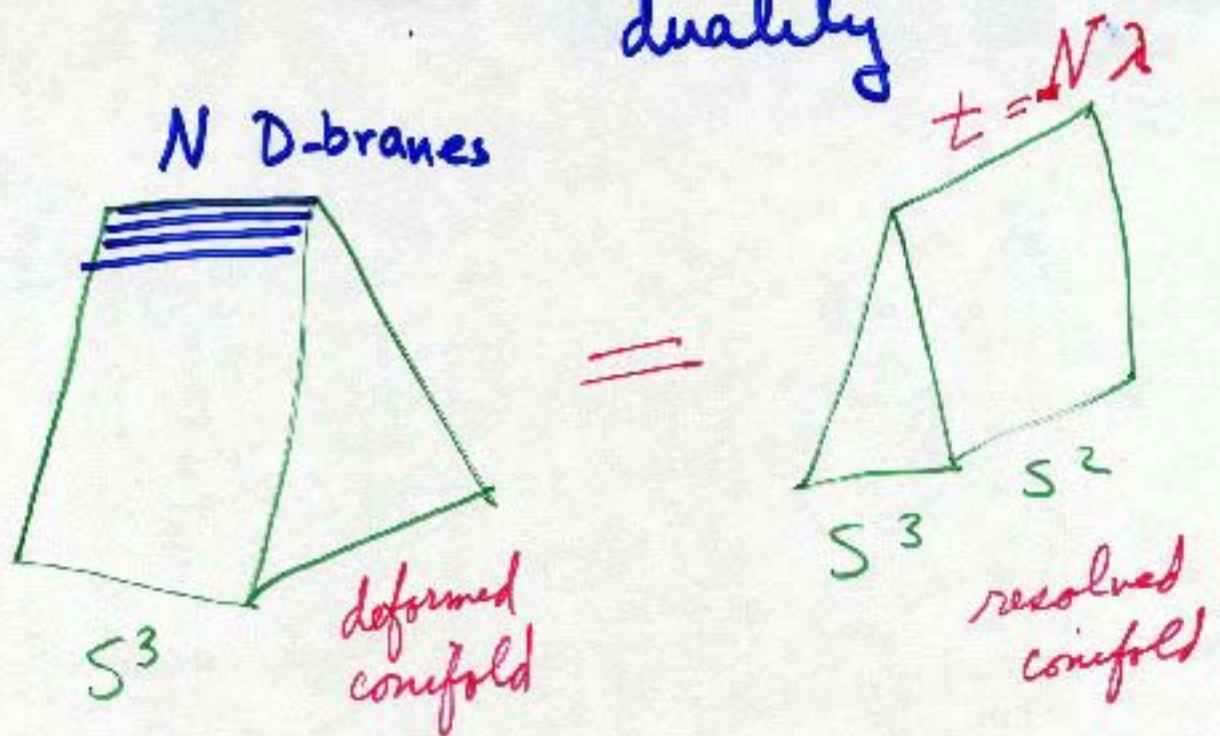 duality
N D-branes
t = Nλ
=
S³
deformed
conifold
S³
S²
resolved
conifold